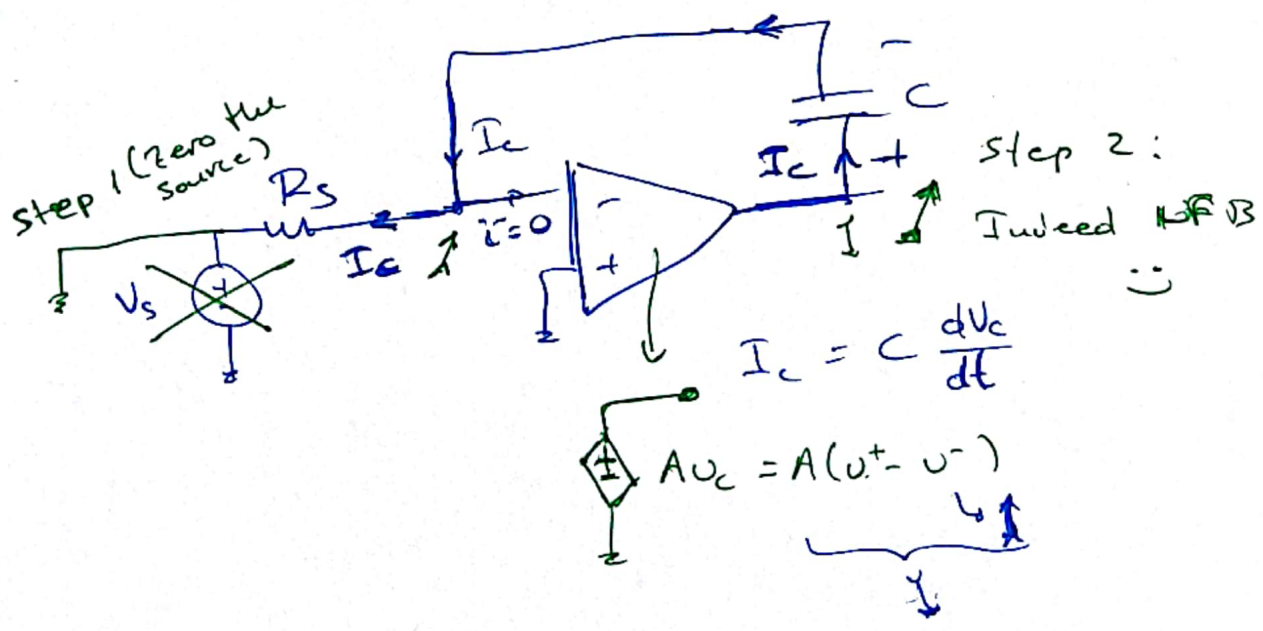 Step 1 (zero the
source)
Rs
Ic
i=0
Ic
Vs
+
-
+
-
C
Ic
+
Step 2:
Indeed NFB
Ic = C dVc/dt
+
AUc = A(U⁺- U⁻)